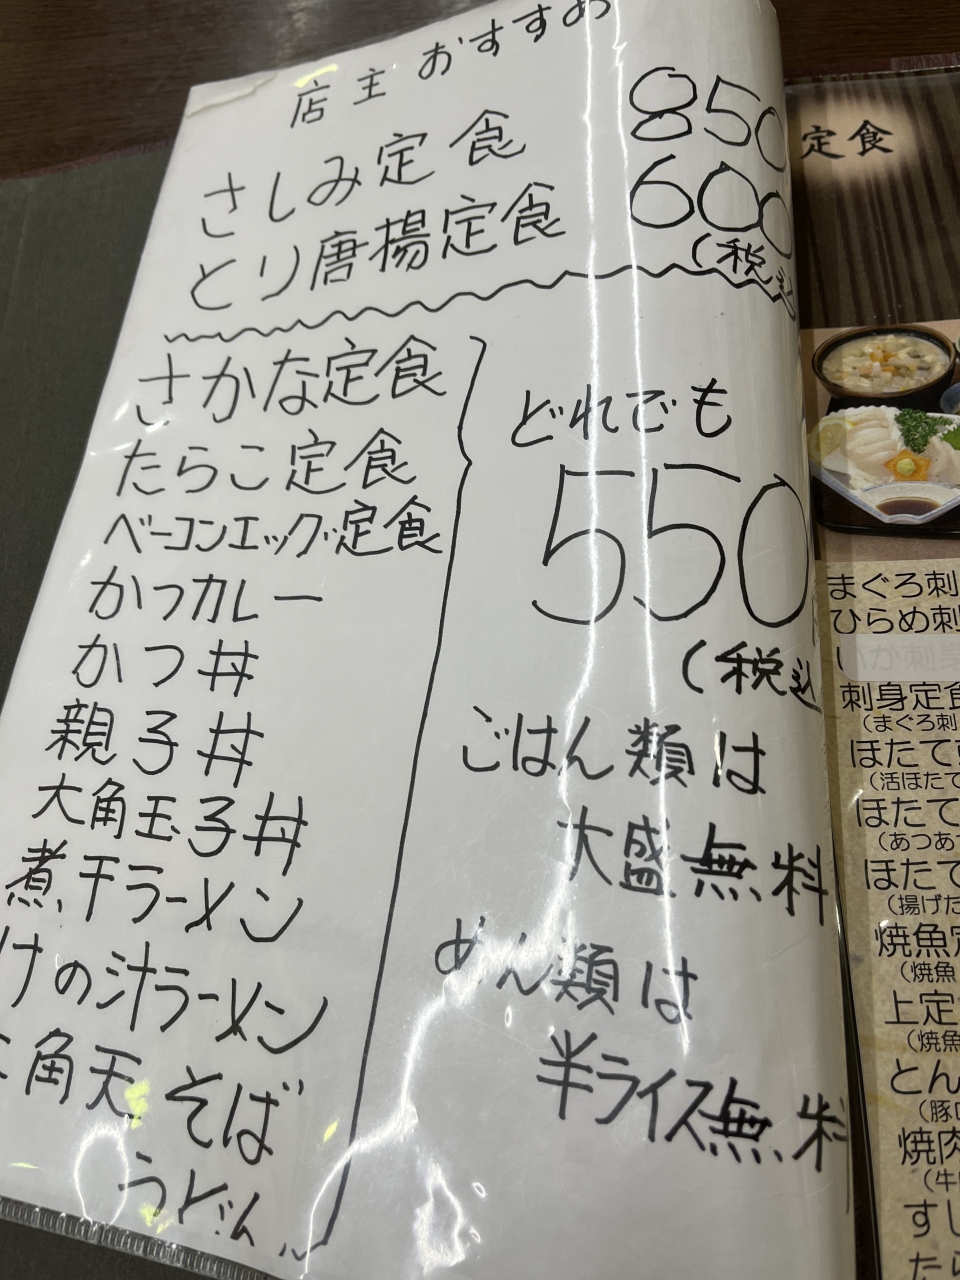 店主おすすめ
さしみ定食 850
とり唐揚定食 600
(税込
さかな定食
たらこ定食
ベーコンエッグ定食
かつカレー
かつ丼
親子丼
大角玉子丼
煮干ラーメン
けの汁ラーメン
角天そば
うどん
どれでも
550
(税込
ごはん類は
大盛無料
めん類は
半ライス無料
定食
まぐろ刺
ひらめ刺
いか刺身
刺身定食
(まぐろ刺
ほたて
(活ほたて
ほたて
(あつあつ
ほたて
(揚げた
焼魚定
(焼魚
上定
(焼魚
とん
(豚
焼肉
(牛
すし
たら